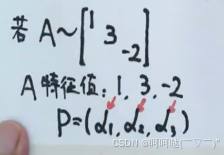 若 A~[1 3 -2]
A 特征值: 1, 3, -2
P=(α₁, α₂, α₃)
CSDN @呵呵哒(￣▽￣)"